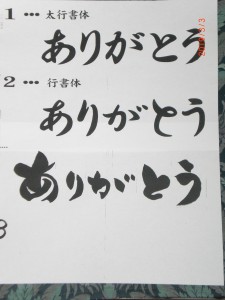 1 ••• 太行書体
ありがとう
2 ••• 行書体
ありがとう
ありがとう